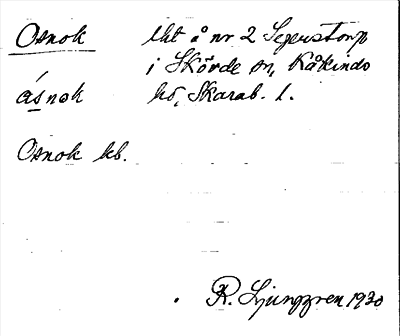 Osnok lht å nr 2 Segerstorp
i Skövde sn, Kåkinds
ásnok hd, Skarab. l.
Osnok kb.
R. Ljunggren 1930